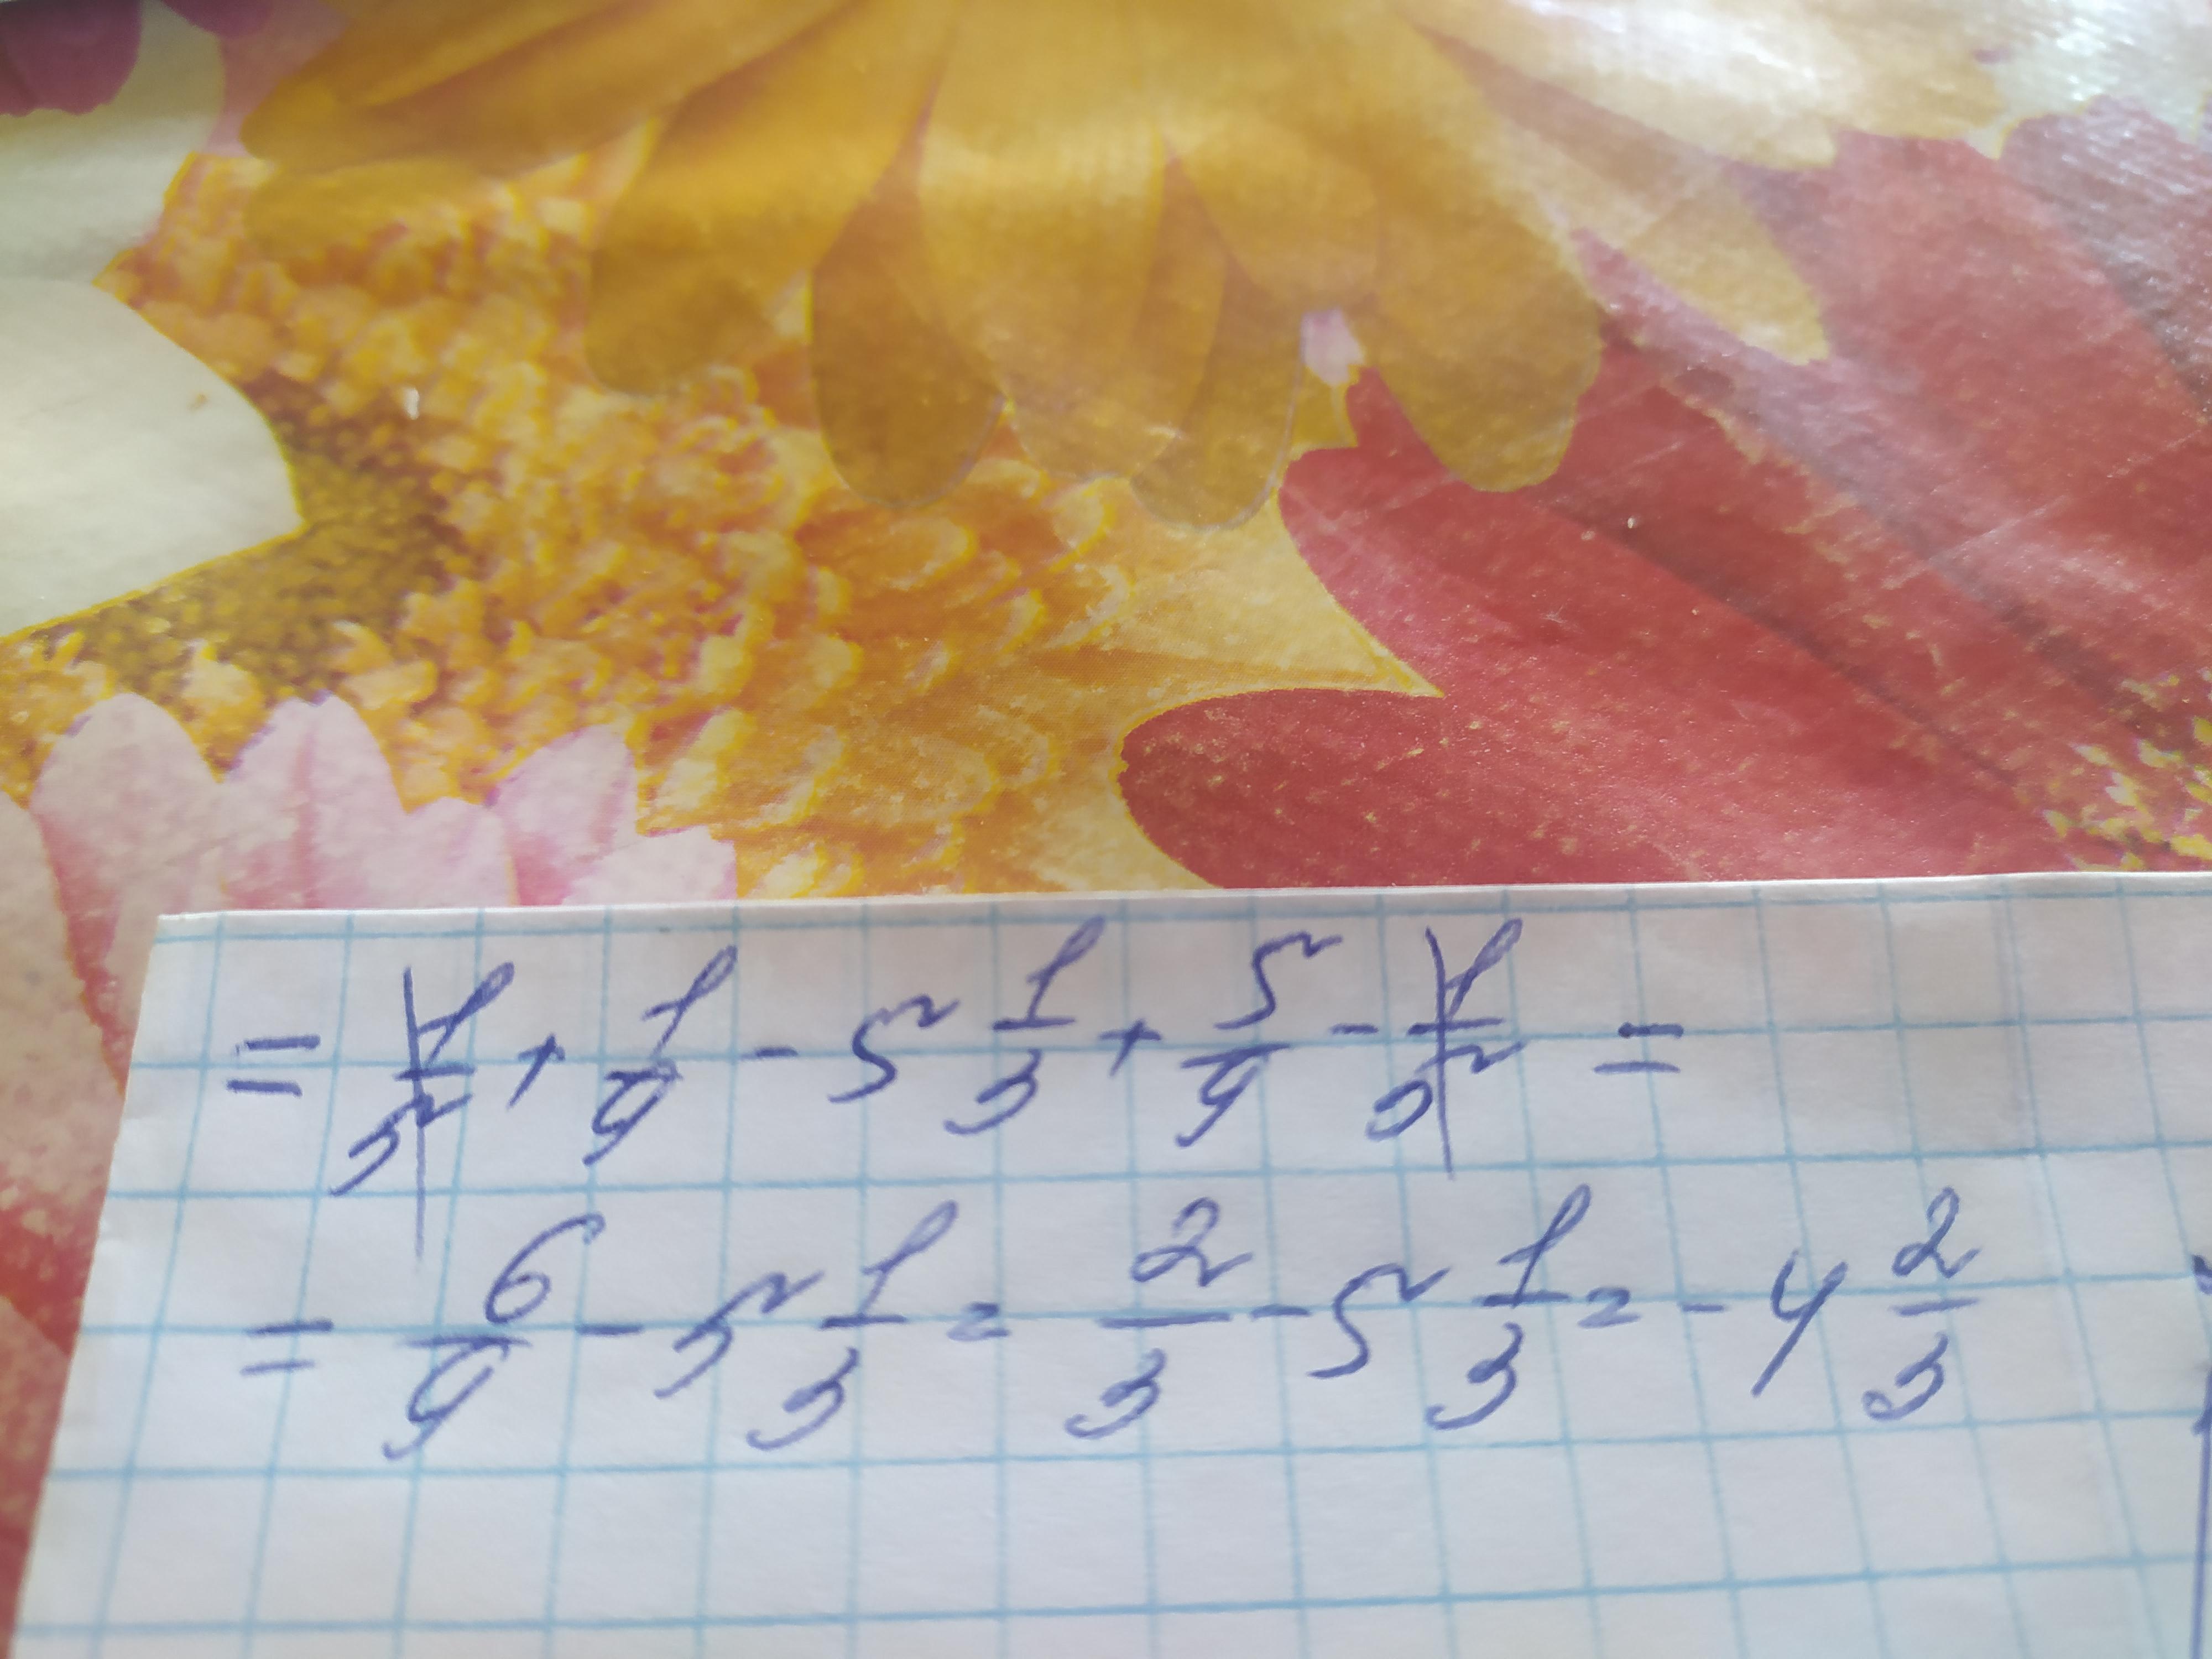 = 1/5 + 1/9 - 5 1/3 + 5/9 - 1/5 =
= 6/9 - 5 1/3 = 2/3 - 5 1/3 = - 4 2/3